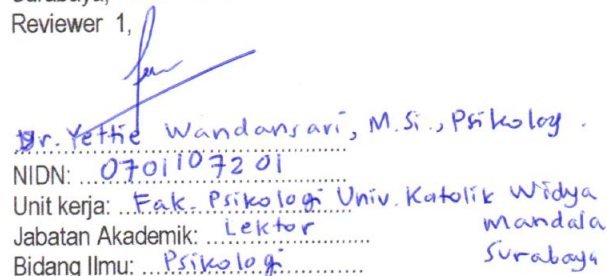 Surabaya,
Reviewer 1,
Dr. Yettie Wandansari, M.Si., Psikolog.
NIDN: 0701107201
Unit kerja: Fak. Psikologi Univ. Katolik Widya
Mandala
Jabatan Akademik: Lektor
Surabaya
Bidang Ilmu: Psikologi